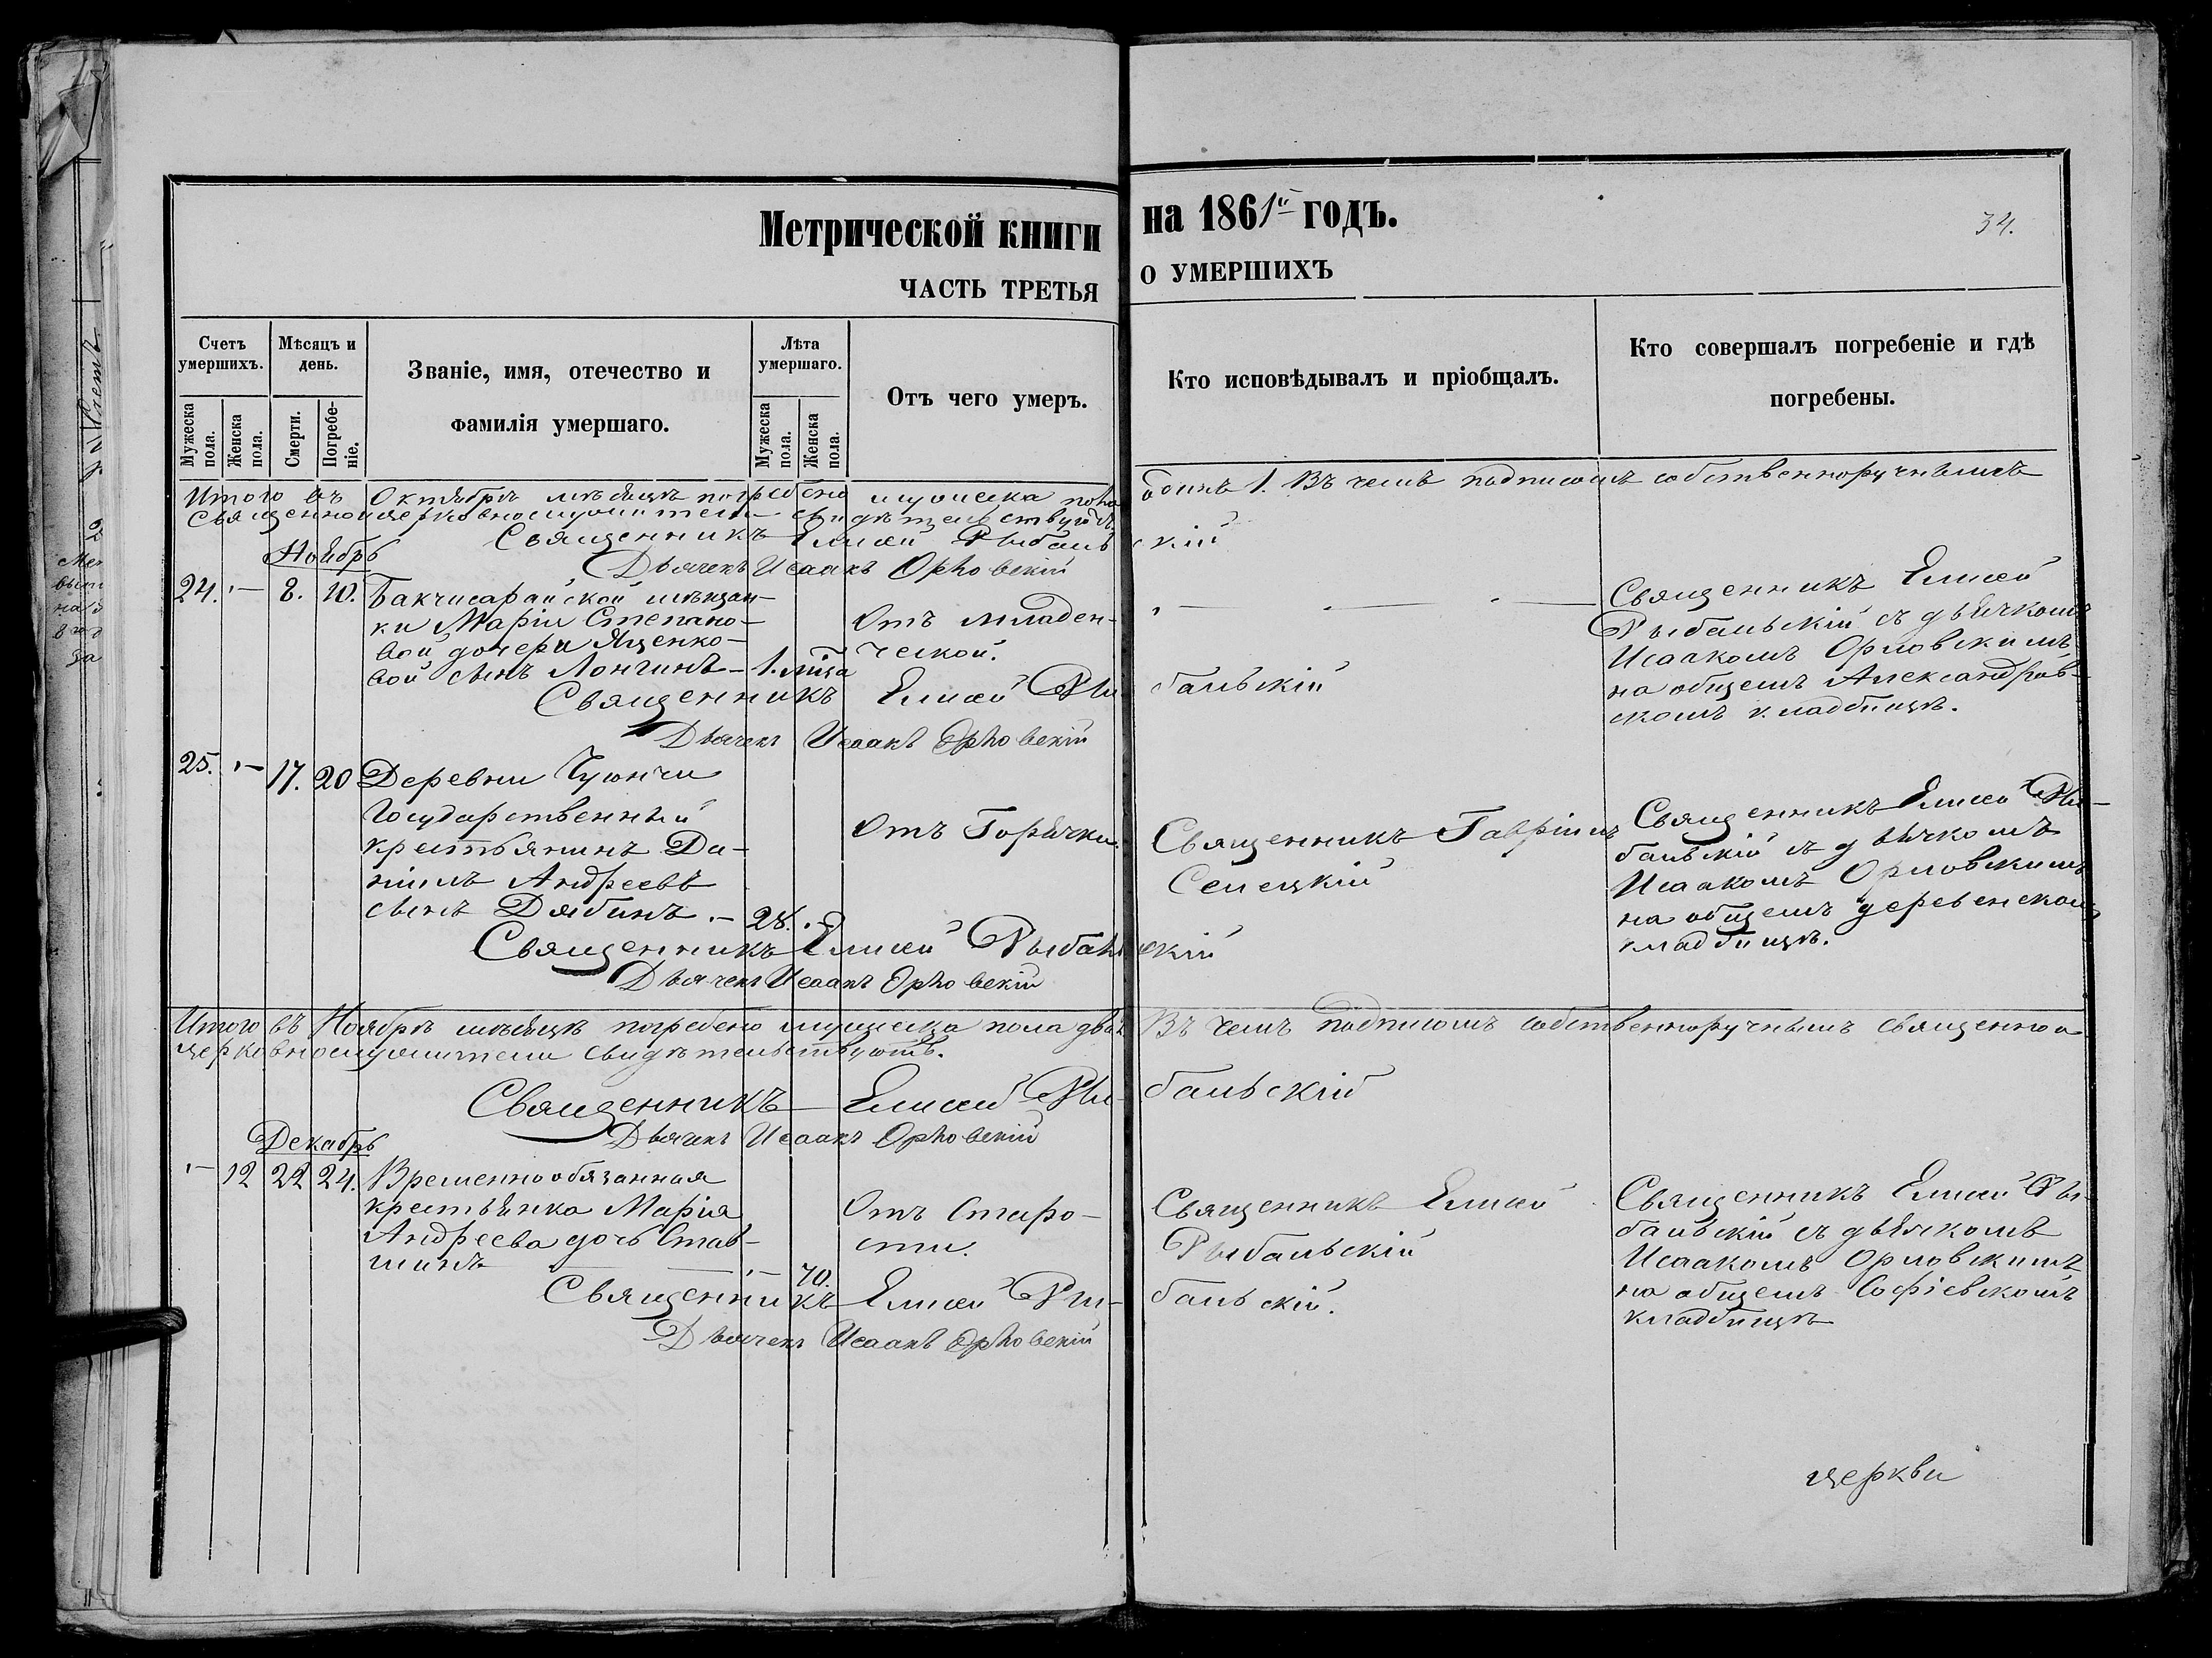 Метрической книги на 1861й годъ.
34.
ЧАСТЬ ТРЕТЬЯ О УМЕРШИХЪ
Счетъ умершихъ.
Мужеска пола.
Женска пола.
Мѣсяцъ и день.
Смерти.
Погребе-ніе.
Званіе, имя, отечество и
фамилія умершаго.
Лѣта умершаго.
Мужеска пола.
Женска пола.
Отъ чего умеръ.
Кто исповѣдывалъ и пріобщалъ.
Кто совершалъ погребеніе и гдѣ
погребены.
Итого въ Октябрѣ мѣсяцѣ погребено мужеска пола одинъ 1. Въ чемъ подписомъ собственноручнымъ
священноцерковнослужители свидѣтельствуютъ.
Священникъ Елисей Рыбальскій
Дьячекъ Исаакъ Орловскій
Ноябрь
24. — 8. 10. Бакчисарайской мѣщан-
ки Маріи Степано-
вой дочери Яценко-
вой сынъ Лонгинъ — 1. мца
Отъ младен-
ческой.
Священникъ Елисей
Рыбальскій съ дьячкомъ
Исаакомъ Орловскимъ
на общемъ Александров-
скомъ кладбищѣ.
Священникъ Елисей Рыбальскій
Дьячекъ Исаакъ Орловскій
25. — 17. 20 Деревни Чуюнчи
Государственный
крестьянинъ Да-
ніилъ Андреевъ
сынъ Дябинъ. — 28.
Отъ Горячки.
Священникъ Гавріилъ
Селецкій
Священникъ Елисей Ры-
бальскій съ дьячкомъ
Исаакомъ Орловскимъ
на общемъ деревенскомъ
кладбищѣ.
Священникъ Елисей Рыбальскій
Дьячекъ Исаакъ Орловскій
Итого въ Ноябрѣ мѣсяцѣ погребено мужеска пола два. Въ чемъ подписомъ собственноручнымъ священно
церковнослужители свидѣтельствуютъ.
Священникъ Елисей Рыбальскій
Дьячекъ Исаакъ Орловскій
Декабрь
— 12 22 24. Временнообязанная
крестьянка Марія
Андреева дочь Став-
— 70.
Отъ Старо-
сти.
Священникъ Елисей
Рыбальскій
Священникъ Елисей Ры-
бальскій съ дьячкомъ
Исаакомъ Орловскимъ
на общемъ Софіевскомъ
кладбищѣ
Священникъ Елисей Рыбальскій.
Дьячекъ Исаакъ Орловскій
церкви